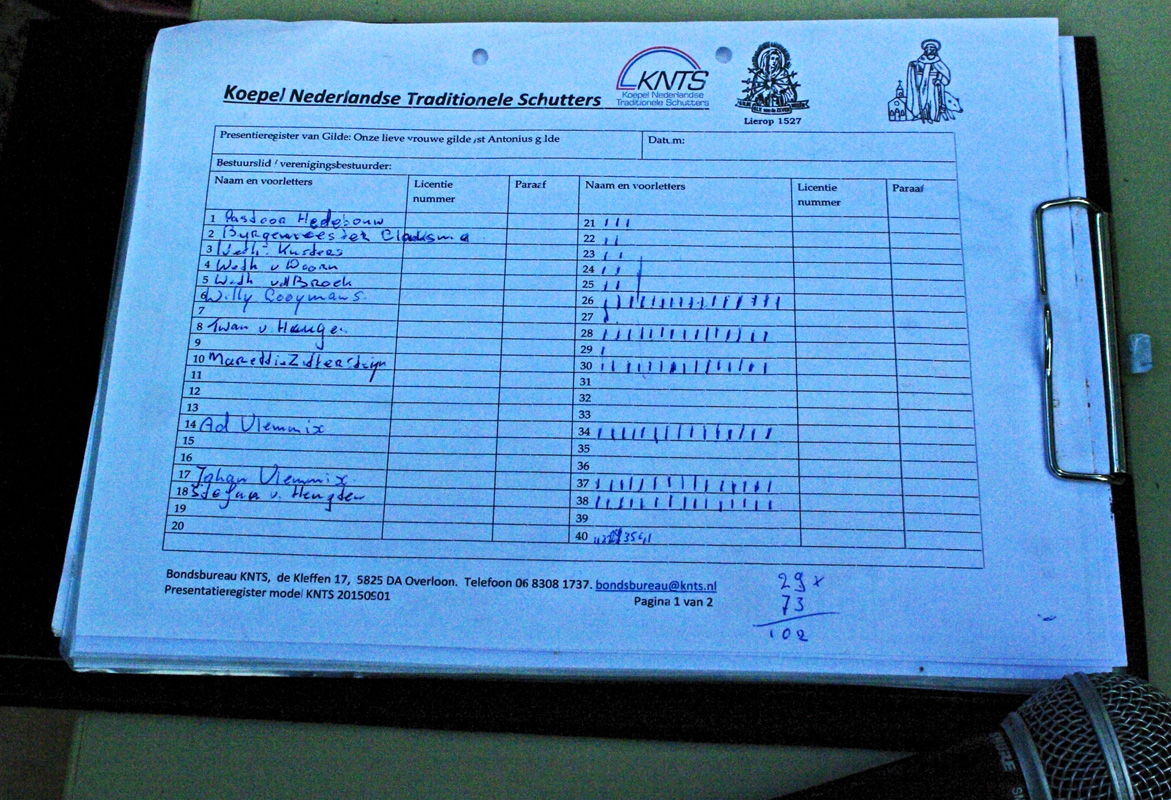 Koepel Nederlandse Traditionele Schutters
KNTS
Koepel Nederlandse
Traditionele Schutters
Lierop 1527
Presentieregister van Gilde: Onze lieve vrouwe gilde st Antonius gilde
Datum:
Bestuurslid / verenigingsbestuurder:
Naam en voorletters Licentie nummer Paraaf Naam en voorletters Licentie nummer Paraaf
1 Pastoor Hedebouw 21
2 Burgemeester Blanksma 22
3 Weth. Kusters 23
4 Weth v Doorn 24
5 Weth vd Broek 25
6 Willy Cooymans 26
7 27
8 Twan v. 28
9 29
10 30
11 31
12 32
13 33
14 Ad Vlemmix 34
15 35
16 36
17 Johan Vlemmix 37
18 Stefan v. Hengten 38
19 39
20 40
Bondsbureau KNTS, de Kleffen 17, 5825 DA Overloon. Telefoon 06 8308 1737. bondsbureau@knts.nl
Presentatieregister model KNTS 20150901
Pagina 1 van 2
29 x
73
102